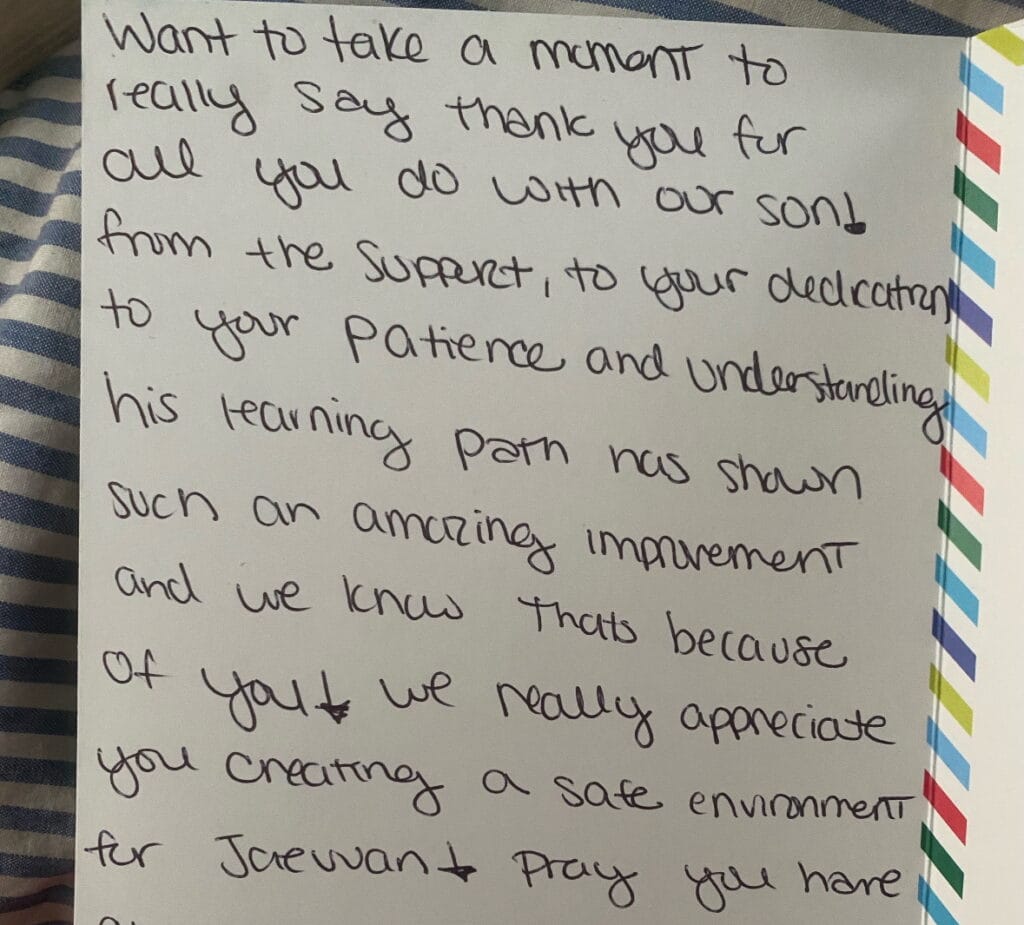 Want to take a moment to
really say thank you for
all you do with our son!
from the support, to your dedication
to your patience and understanding
his learning path has shown
such an amazing improvement
and we know thats because
of you! we really appreciate
you creating a safe environment
for Jaewan! Pray you have